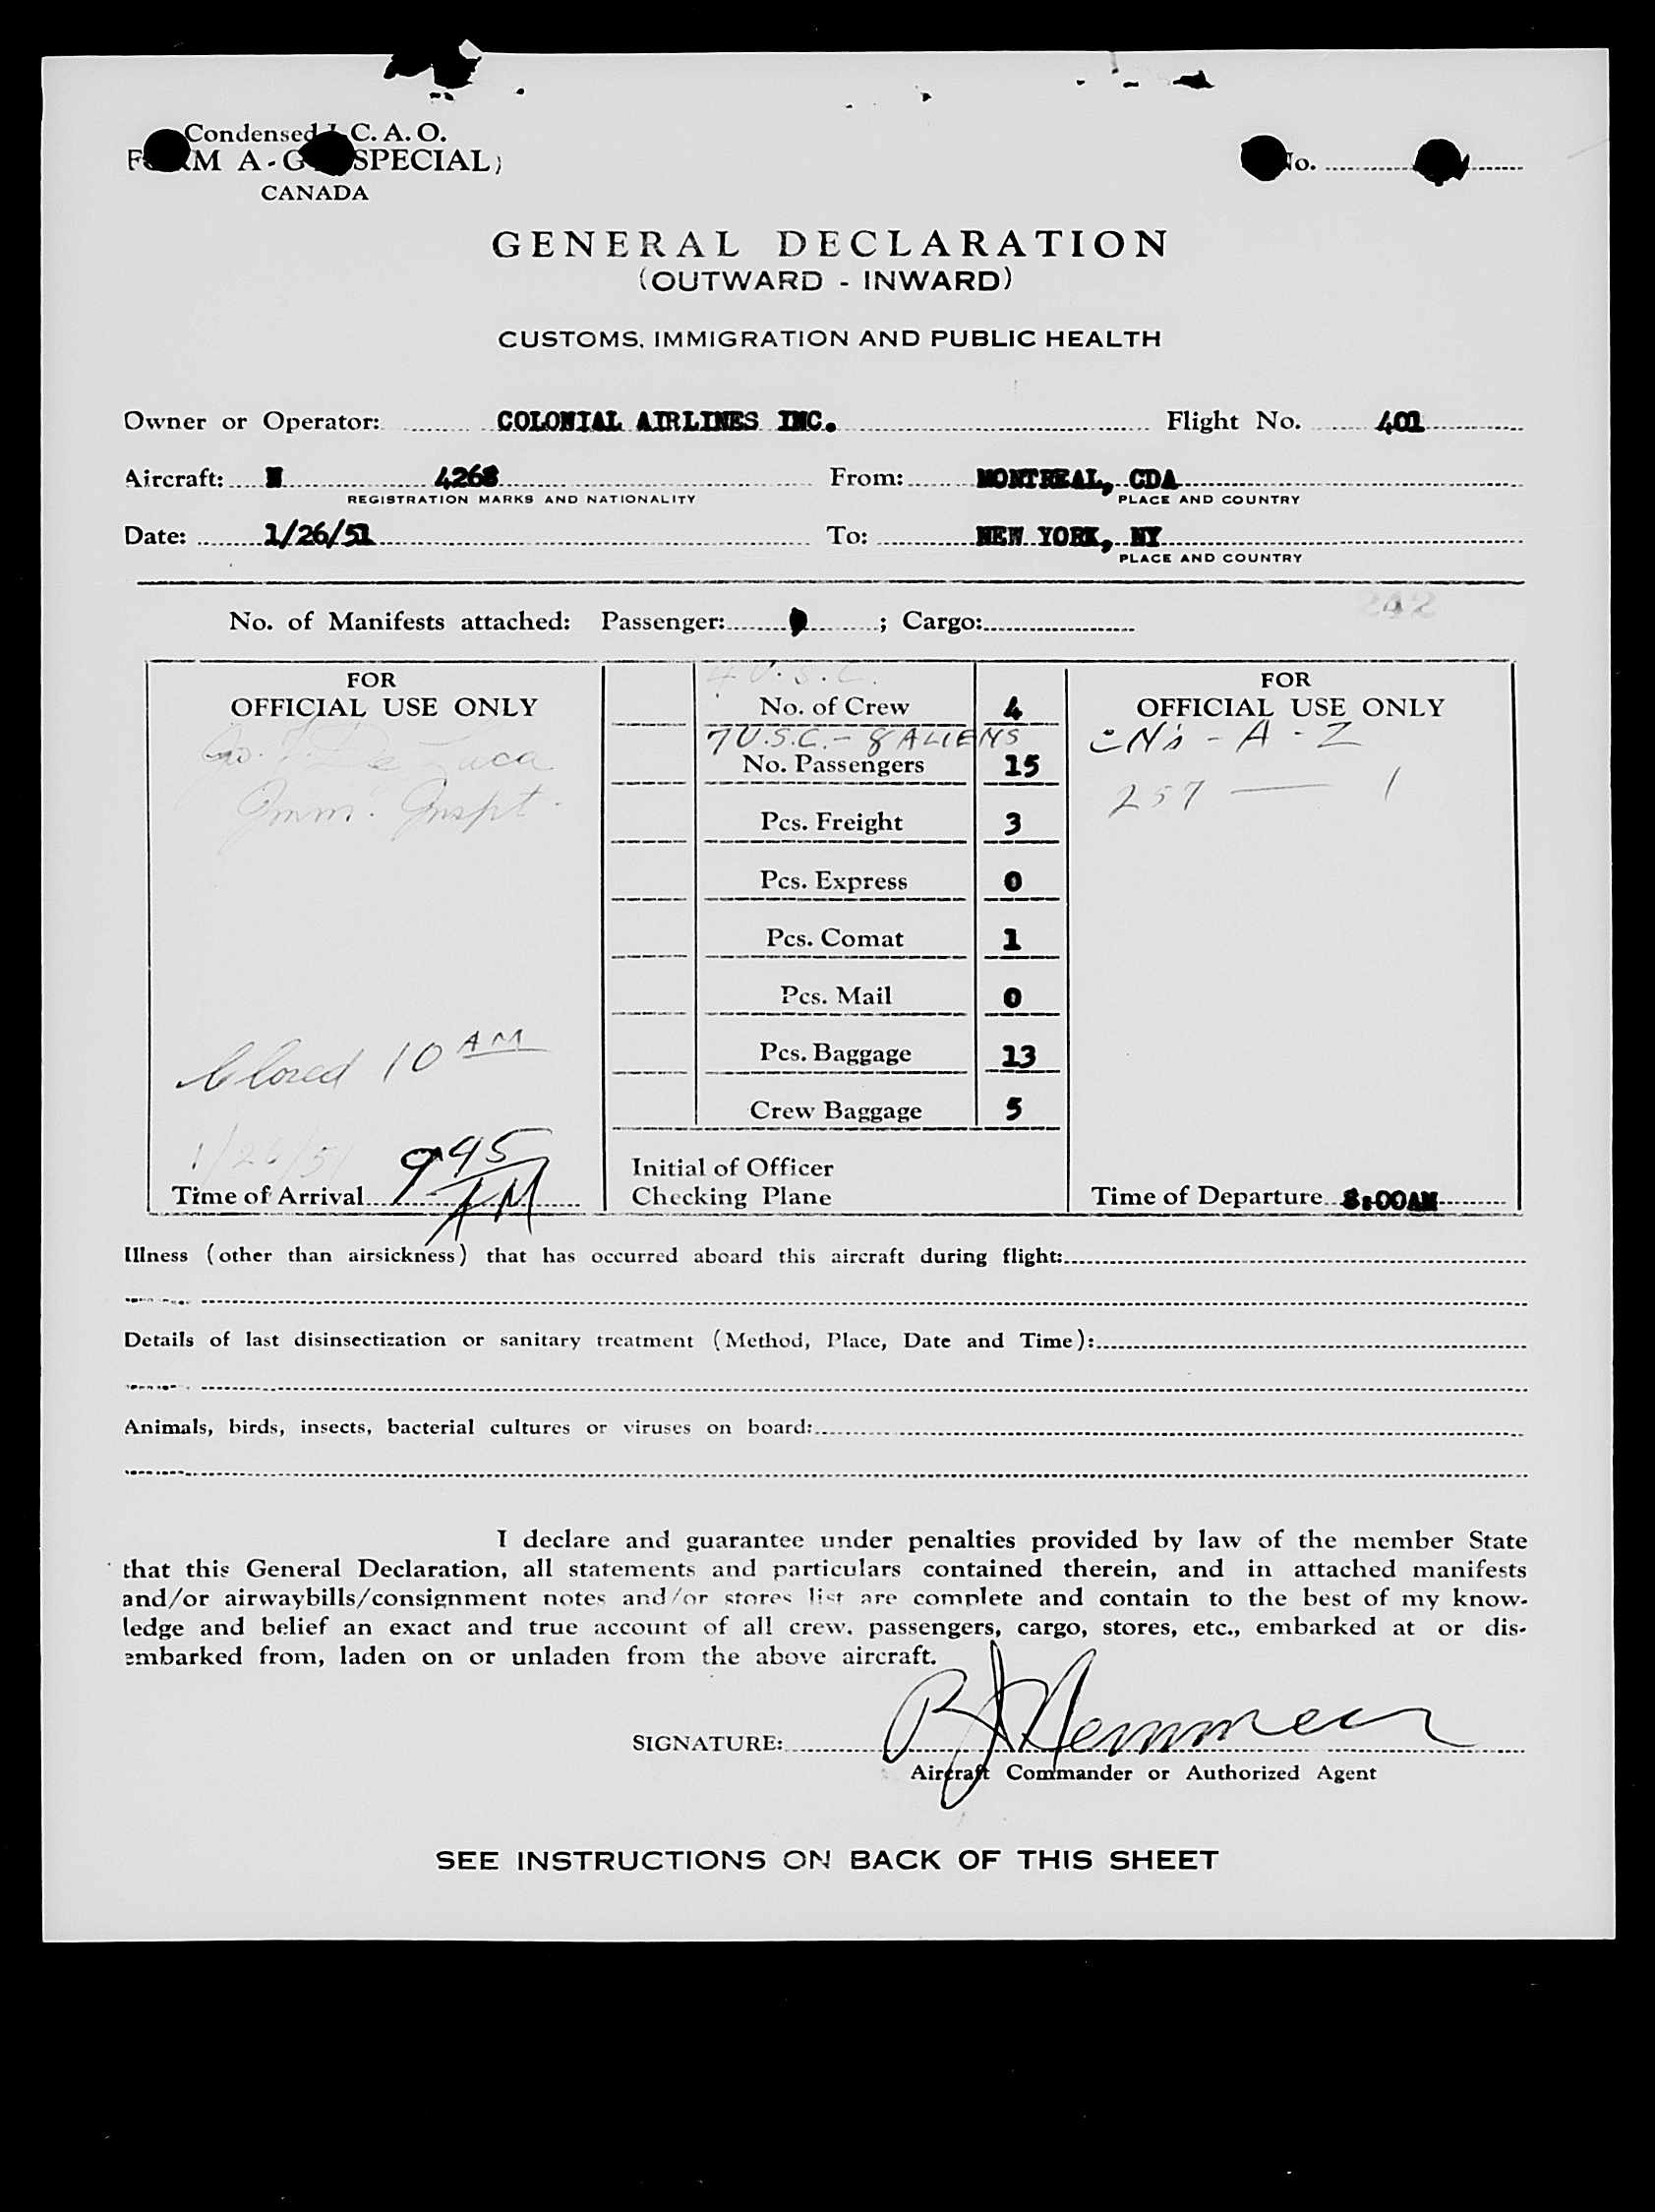 Condensed I. C. A. O.
FORM A-G (SPECIAL)
CANADA
No.
GENERAL DECLARATION
(OUTWARD - INWARD)
CUSTOMS, IMMIGRATION AND PUBLIC HEALTH
Owner or Operator: COLONIAL AIRLINES INC. Flight No. 401
Aircraft: N 4268 From: MONTREAL, CDA
REGISTRATION MARKS AND NATIONALITY PLACE AND COUNTRY
Date: 1/26/51 To: NEW YORK, NY
PLACE AND COUNTRY
242
No. of Manifests attached: Passenger: ; Cargo:
FOR
OFFICIAL USE ONLY
De Luca
Imm. Inspt.
Closed 10 AM
1/26/51
Time of Arrival 945 AM
4 U.S.C.
No. of Crew 4
7 U.S.C. - 8 ALIENS
No. Passengers 15
Pcs. Freight 3
Pcs. Express 0
Pcs. Comat 1
Pcs. Mail 0
Pcs. Baggage 13
Crew Baggage 5
Initial of Officer
Checking Plane
FOR
OFFICIAL USE ONLY
N's - A - Z
257 — 1
Time of Departure 8:00AM
Illness (other than airsickness) that has occurred aboard this aircraft during flight:
Details of last disinsectization or sanitary treatment (Method, Place, Date and Time):
Animals, birds, insects, bacterial cultures or viruses on board:
I declare and guarantee under penalties provided by law of the member State
that this General Declaration, all statements and particulars contained therein, and in attached manifests
and/or airwaybills/consignment notes and/or stores list are complete and contain to the best of my know-
ledge and belief an exact and true account of all crew, passengers, cargo, stores, etc., embarked at or dis-
embarked from, laden on or unladen from the above aircraft.
SIGNATURE:
Aircraft Commander or Authorized Agent
SEE INSTRUCTIONS ON BACK OF THIS SHEET